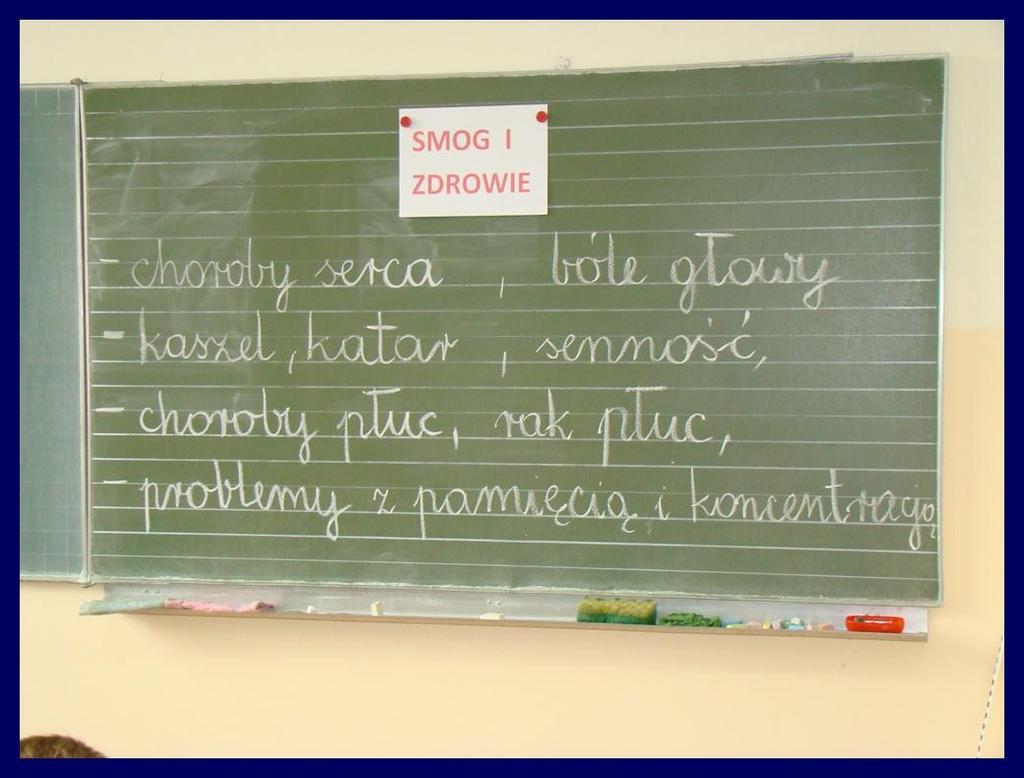 SMOG I
ZDROWIE
- choroby serca , bóle głowy
- kaszel, katar , senność,
- choroby płuc, rak płuc,
- problemy z pamięcią i koncentracją